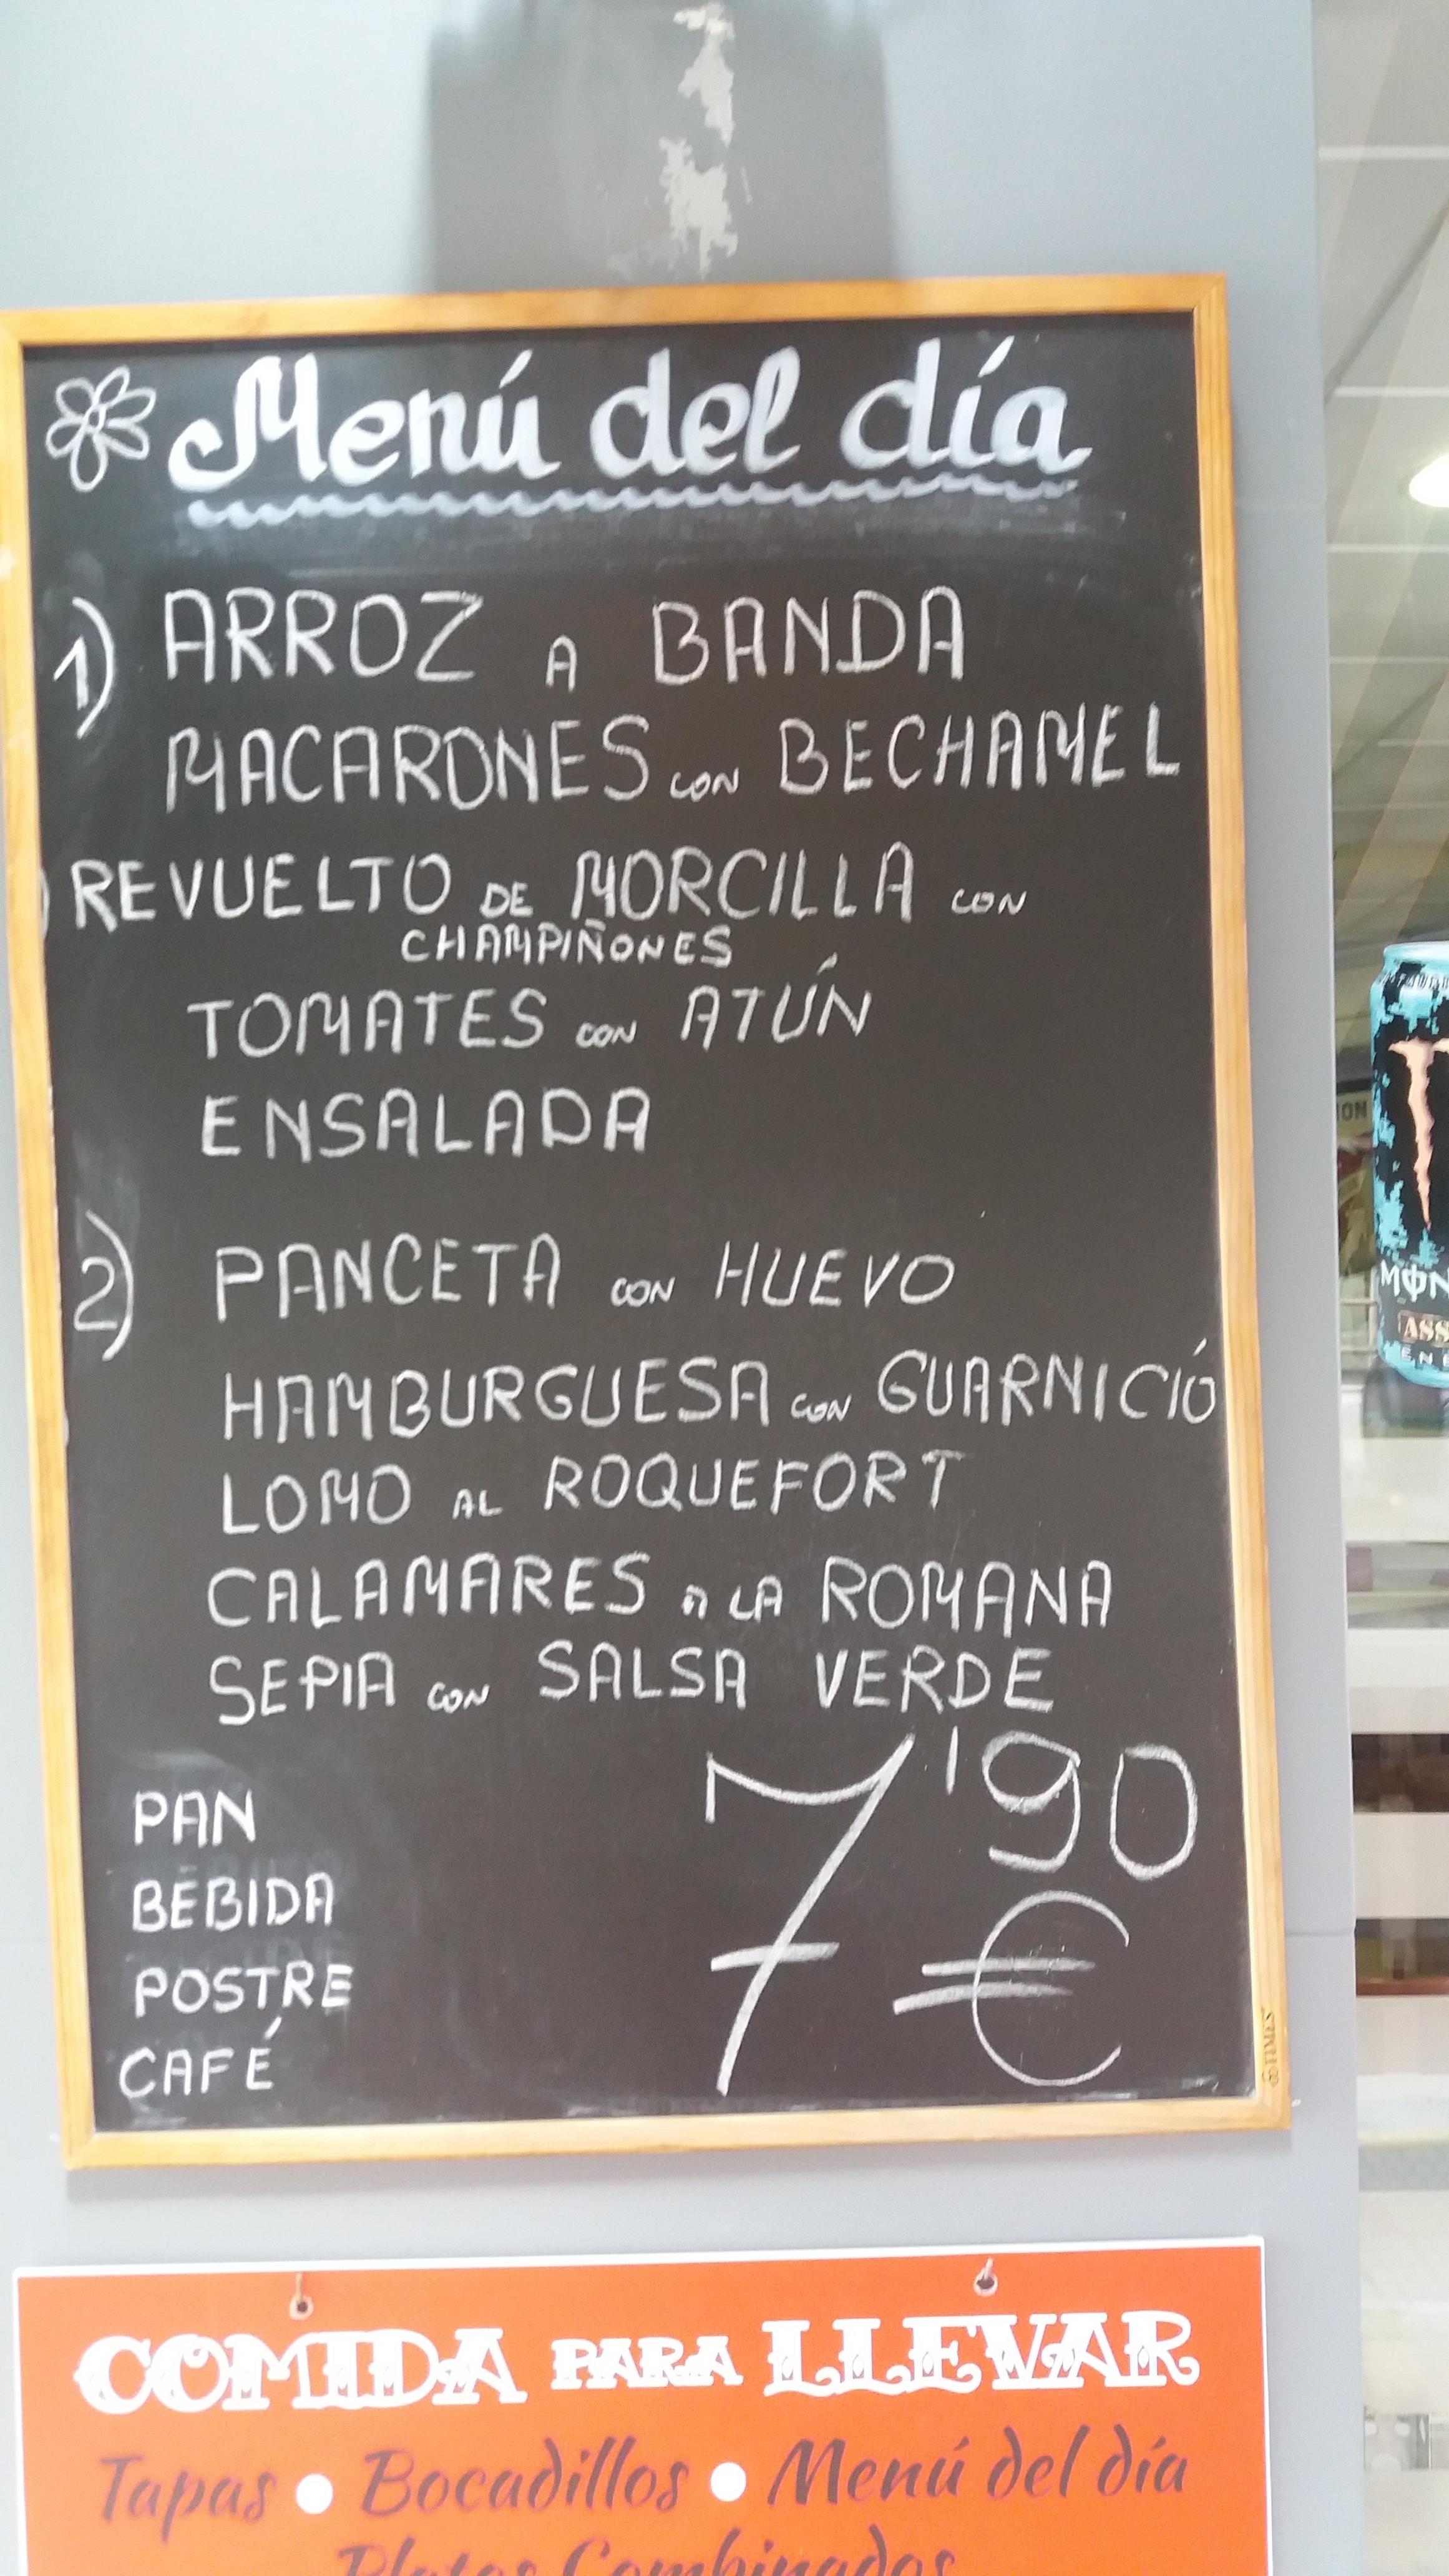 Menú del día
1) ARROZ A BANDA
MACARONES CON BECHAMEL
REVUELTO DE MORCILLA CON
CHAMPIÑONES
TOMATES CON ATÚN
ENSALADA
2) PANCETA CON HUEVO
HAMBURGUESA CON GUARNICIÓ
LOMO AL ROQUEFORT
CALAMARES A LA ROMANA
SEPIA CON SALSA VERDE
7'90
€
PAN
BEBIDA
POSTRE
CAFÉ
TIMES
COMIDA PARA LLEVAR
Tapas • Bocadillos • Menú del día
Platos Combinados